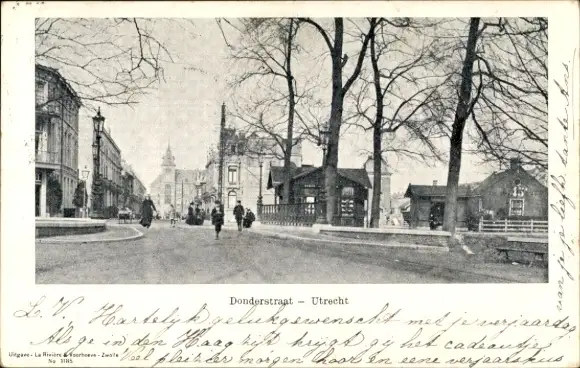 Donderstraat – Utrecht
L. V. Hartelijk gelukgewenscht met je verjaardag
Als ge in den Haag zijt krijgt gij het cadeautje.
Veel pleizier morgen hoor en eene verjaarskus
van je liefste tante
Uitgave - La Rivière & Voorhoeve - Zwolle
No 1185